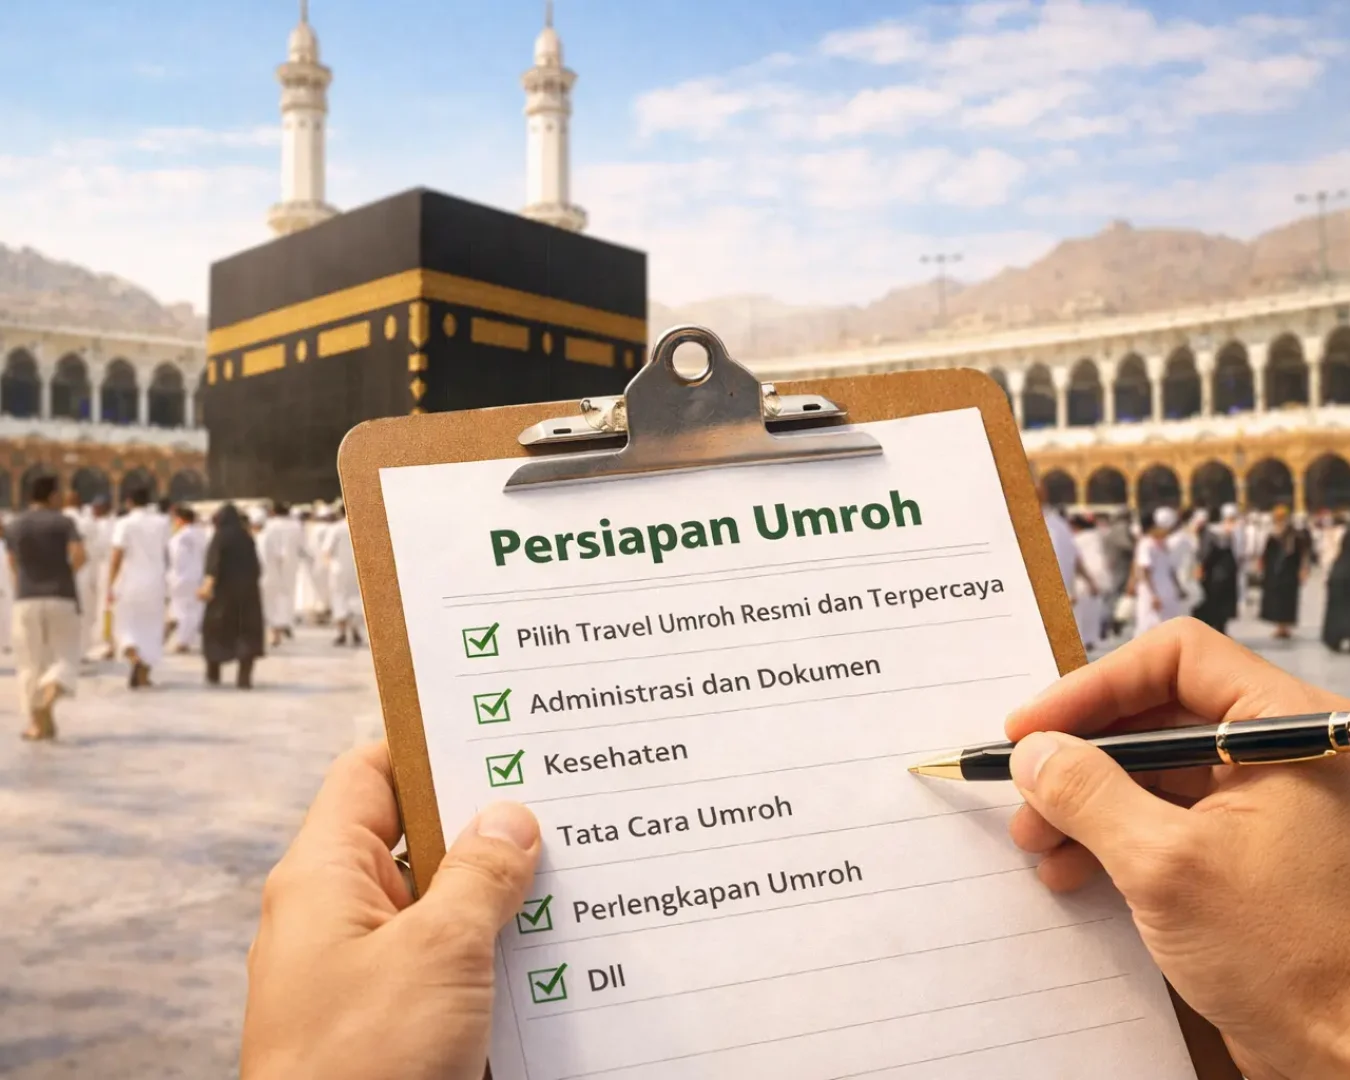 Persiapan Umroh
Pilih Travel Umroh Resmi dan Terpercaya
Administrasi dan Dokumen
Kesehaten
Tata Cara Umroh
Perlengkapan Umroh
Dll